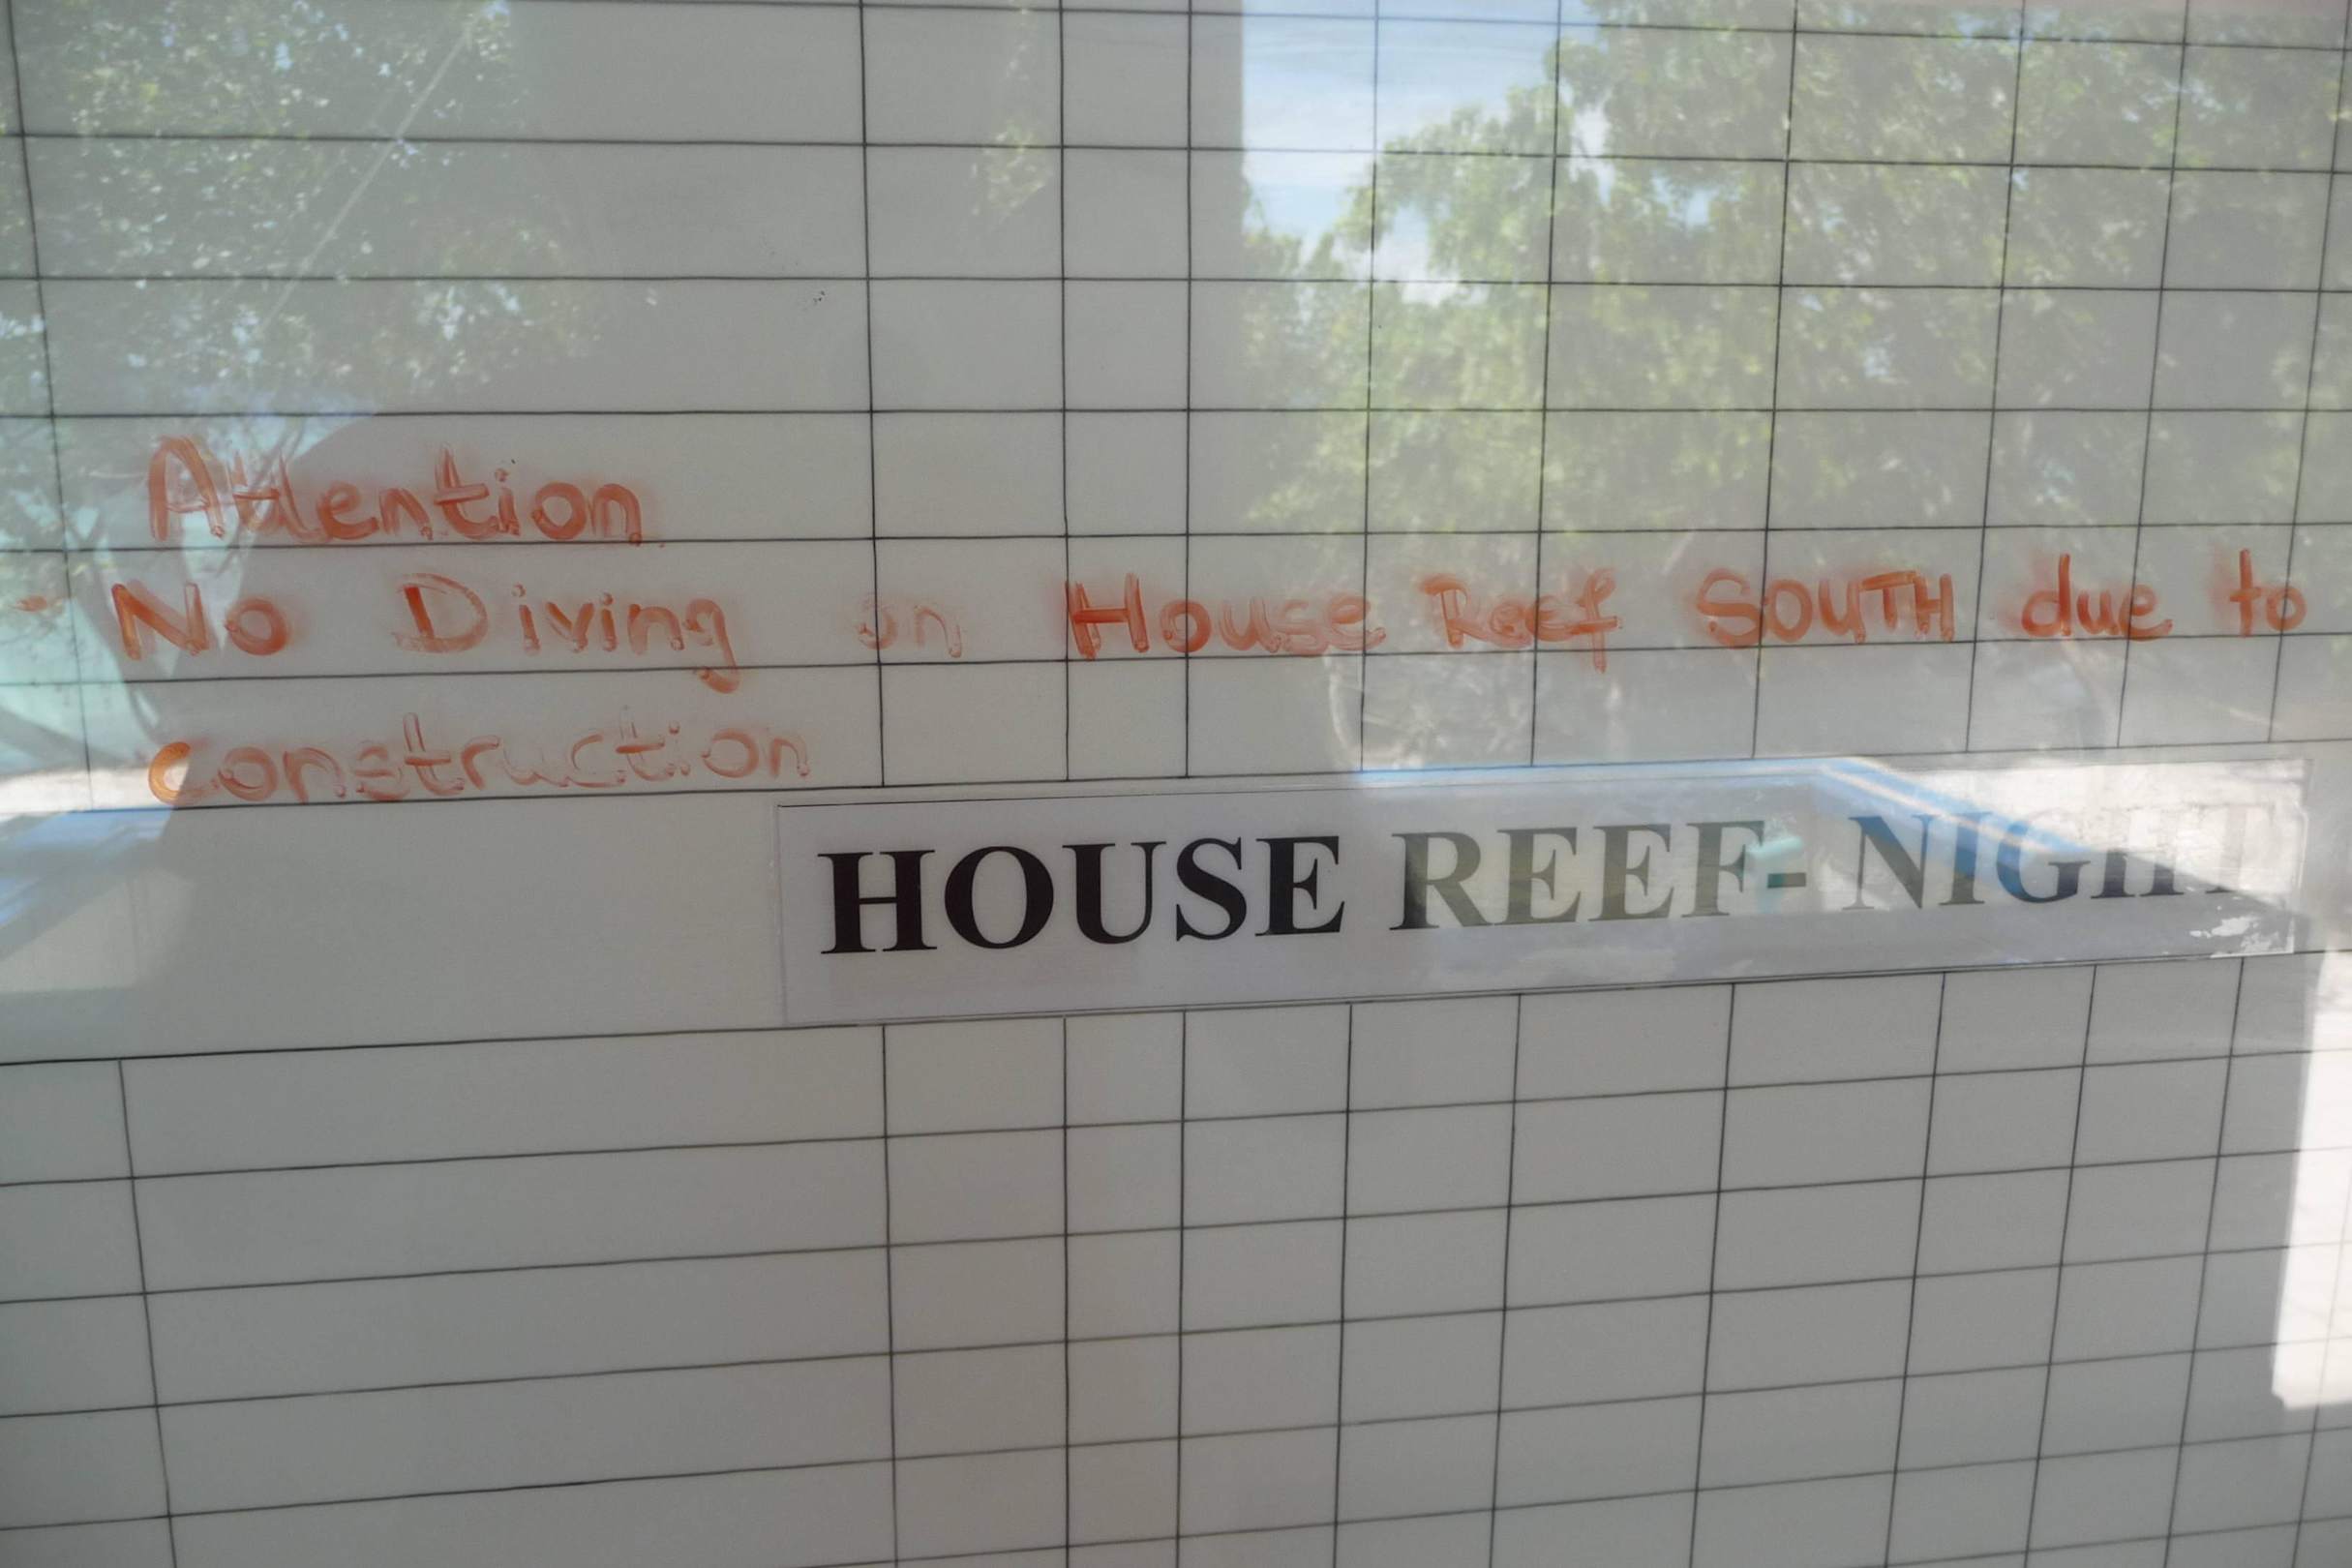 Attention
- No Diving on House Reef SOUTH due to
construction
HOUSE REEF- NIGHT